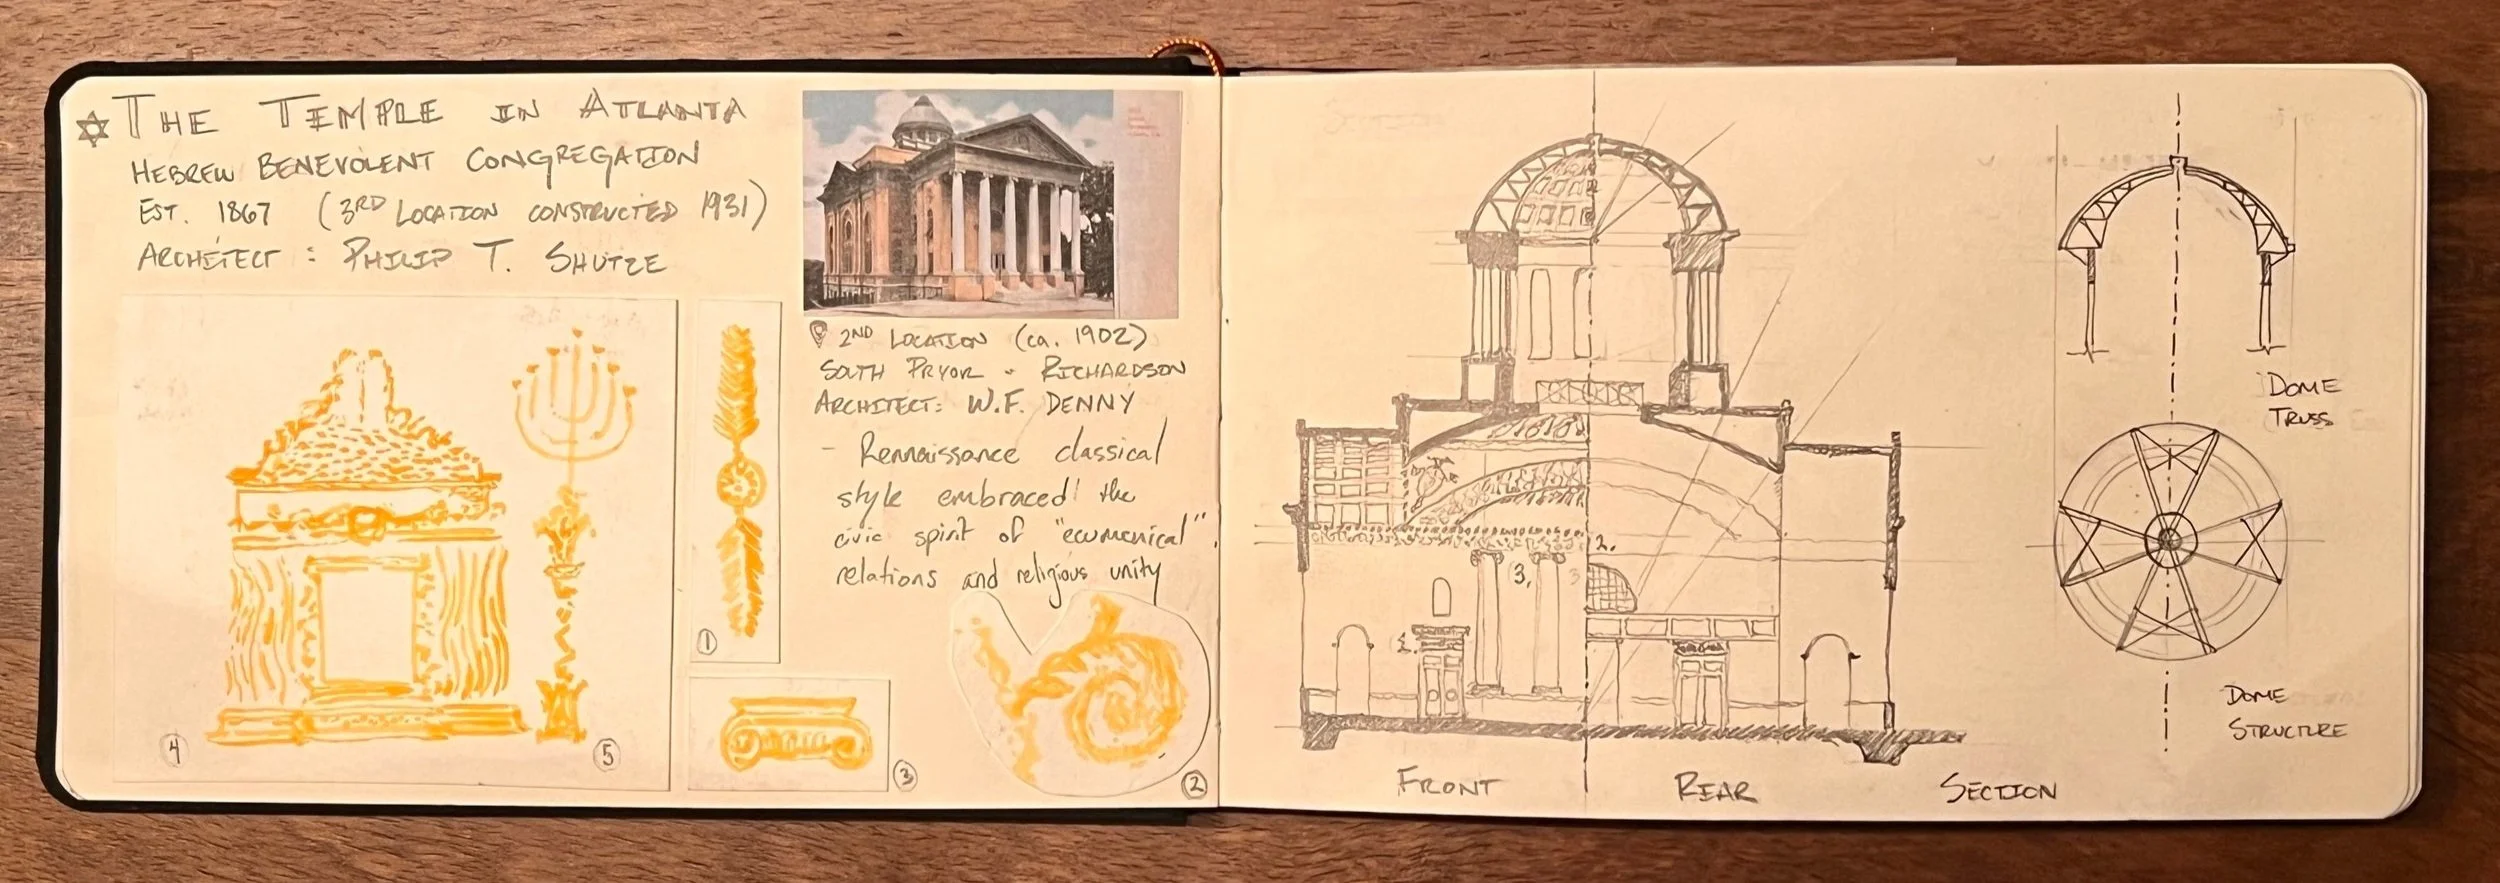 THE TEMPLE IN ATLANTA
HEBREW BENEVOLENT CONGREGATION
EST. 1867 (3RD LOCATION CONSTRUCTED 1931)
ARCHITECT : PHILIP T. SHUTZE
4
5
1
3
2ND LOCATION (ca. 1902)
SOUTH PRYOR - RICHARDSON
ARCHITECT: W.F. DENNY
- Rennaissance classical
style embraced the
civic spirit of "ecumenical"
relations and religious unity
2
2.
3.
3
1.
FRONT
REAR
SECTION
DOME
TRUSS
DOME
STRUCTURE